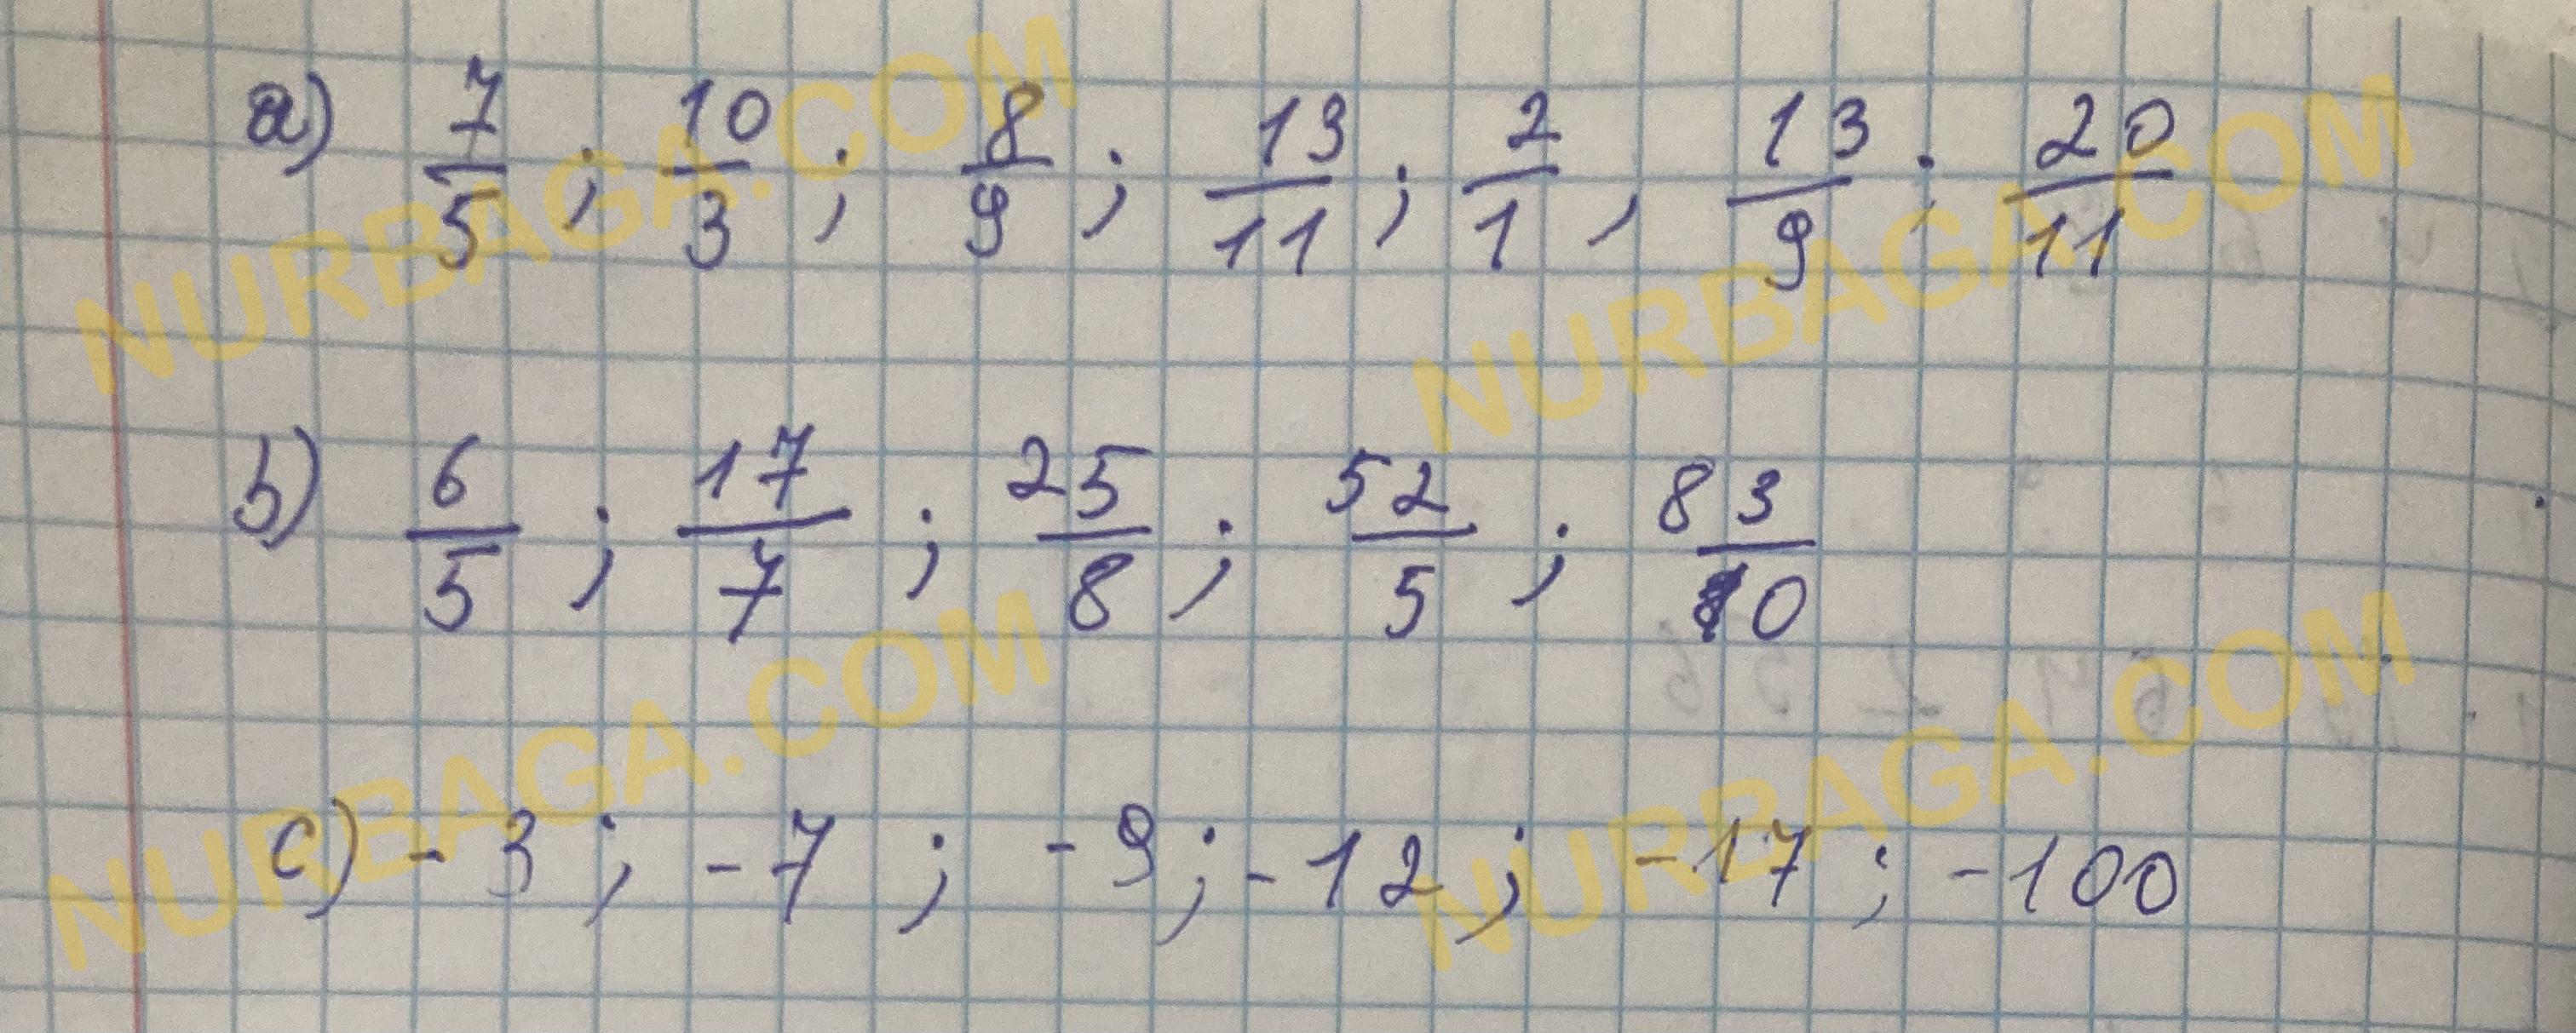 a) 7/5 ; 10/3 ; 8/9 ; 13/11 ; 2/1 , 13/9 ; 20/11
b) 6/5 ; 17/7 ; 25/8 ; 52/5 ; 83/10
c) -3 ; -7 ; -9 ; -12 ; -17 ; -100
NURBAGA.COM
NURBAGA.COM
NURBAGA.COM
NURBAGA.COM